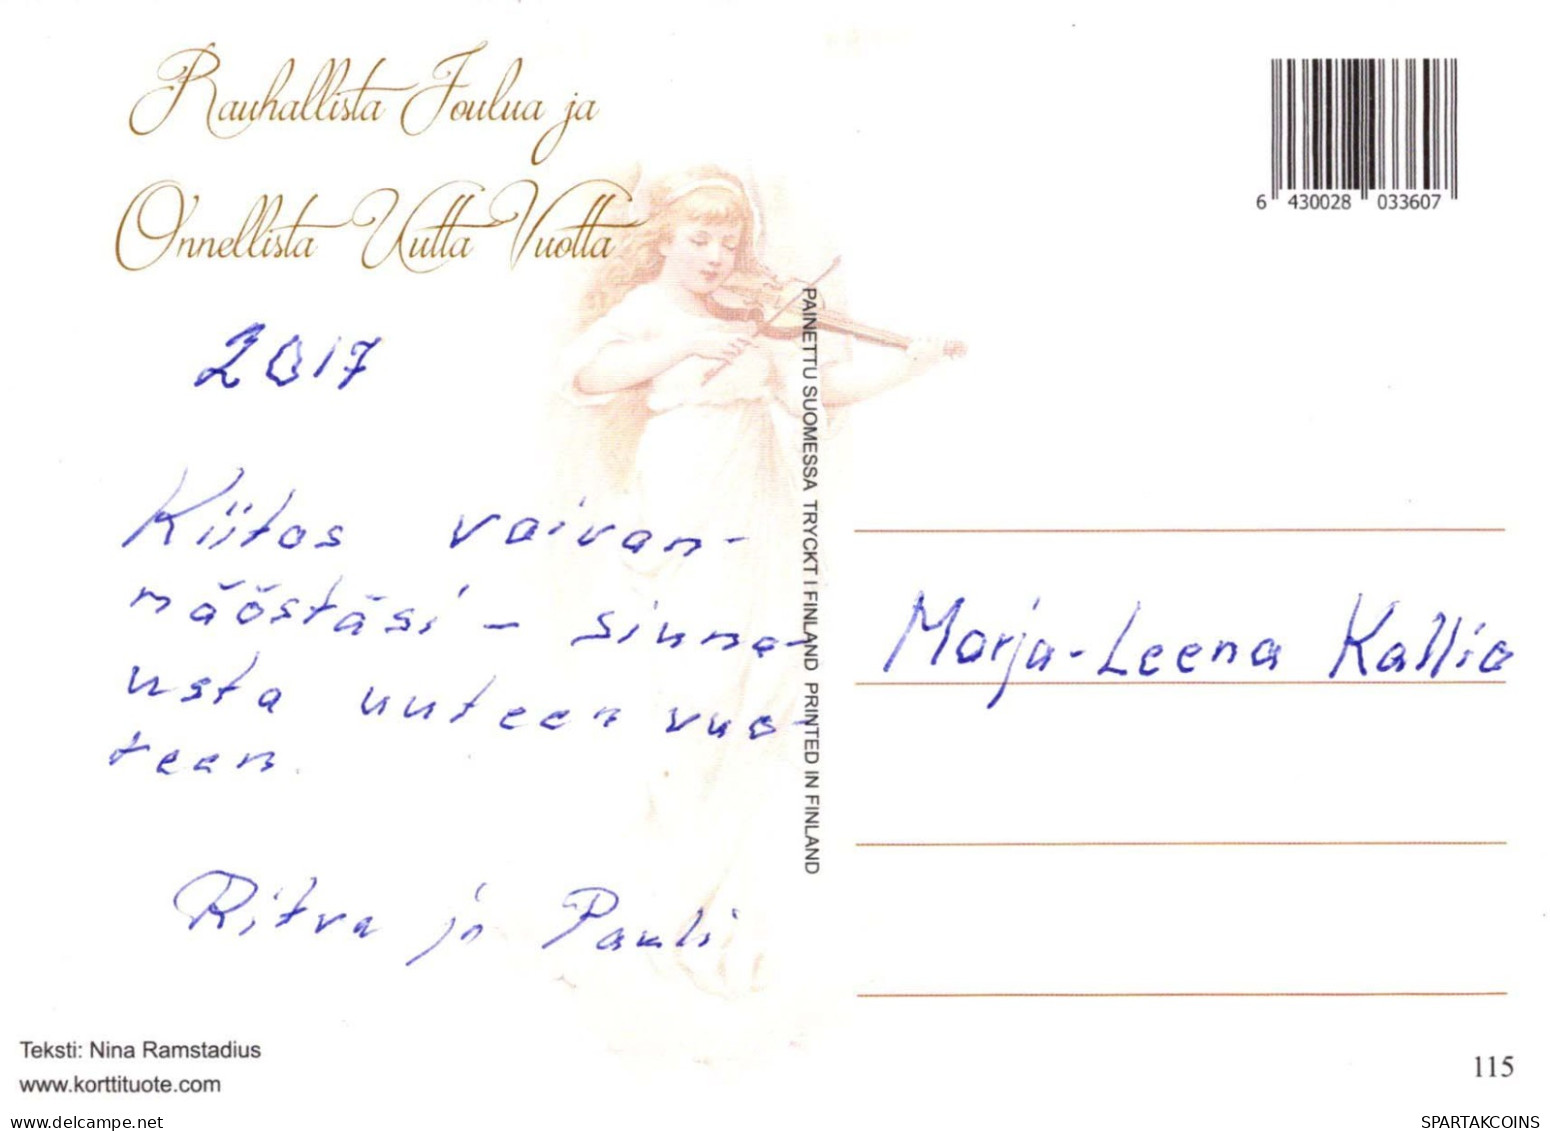 Rauhallista Joulua ja
Onnellista Uutta Vuotta
2017
Kiitos vaivan-
näöstäsi - siuna-
usta uuteen vuo-
teen.
Ritva ja Pauli
PAINETTU SUOMESSA TRYCKT I FINLAND PRINTED IN FINLAND
6 430028 033607
Marja-Leena Kallio
Teksti: Nina Ramstadius
www.korttituote.com
115
delcampe.net
SPARTAKCOINS